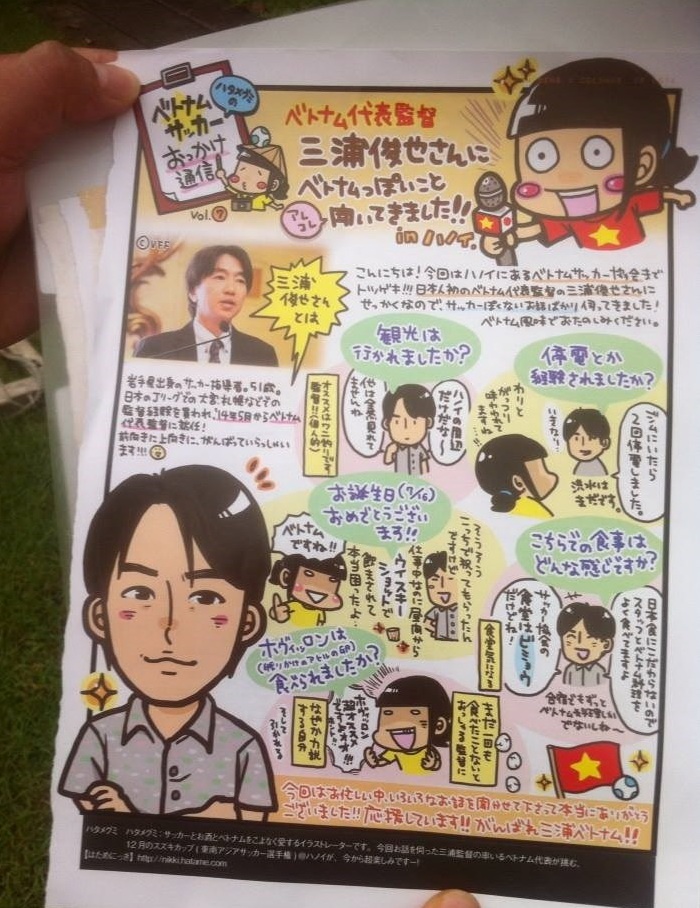 ハタメグミの
ベトナム
サッカー
おっかけ
通信!
vol.⑦
ベトナム代表監督
三浦俊也さんに
ベトナムっぽいこと
アレ
コレ
聞いてきました!!
in ハノイ。
©VFF
三浦
俊也さん
とは
こんにちは!今回はハノイにあるベトナムサッカー協会まで
トツゲキ!!!日本人初のベトナム代表監督の三浦俊也さんに
せっかくなので、サッカーぽくないお話ばかり伺ってきました!
ベトナム風味でおたのしみください。
岩手県出身のサッカー指導者。51歳。
日本のJリーグでの大宮、札幌などでの
監督経験を買われ、'14年5月からベトナム
代表監督に就任!
前向きに上向きに、がんばっていらっしゃい
ます!!!
観光は
行かれましたか?
ハノイの周辺
だけだな〜
他は全然見れて
ませんね
オススメはワニ釣りです
監督!!(個人的)
停電とか
経験されましたか?
ジムにいたら
2回停電しました。
洪水は
まだです。
いきなり…
わりと
がっつり
味わわれて
ますね…
お誕生日(7/16)
おめでとうござい
ます!!
そうそう
こっちで祝ってもらったん
ですけど
仕事中なのに昼間から
ウイスキー
ショットで
飲まされて
本当困ったよ…
ベトナム
ですね!!
こちらでの食事は
どんな感じですか?
日本食にこだわらないので
スタッフとベトナム料理を
よく食べてますよ
サッカー協会の
食堂はビミョウ
だけどね!
食堂気になる
合宿でもずっと
ベトナム料理しか
でないしね〜
ホヴィッロンは
(孵りかけのアヒルの卵)
食べられましたか?
まだ一回も
食べたことないと
おっしゃる監督に
ホヴィッロン
超オススメ
ですよオオ!!!
なぜか力説
する自分
そして
引かれる
今回はお忙しい中、いろいろなお話を聞かせて下さって本当にありがとう
ございました!!応援しています!!がんばれ三浦ベトナム!!
ハタメグミ ハタメグミ:サッカーとお酒とベトナムをこよなく愛するイラストレーターです。今回お話を伺った三浦監督の率いるベトナム代表が挑む、
12月のスズキカップ(東南アジアサッカー選手権)@ハノイが、今から超楽しみです〜!
【はためにっき】http://nikki.hatame.com